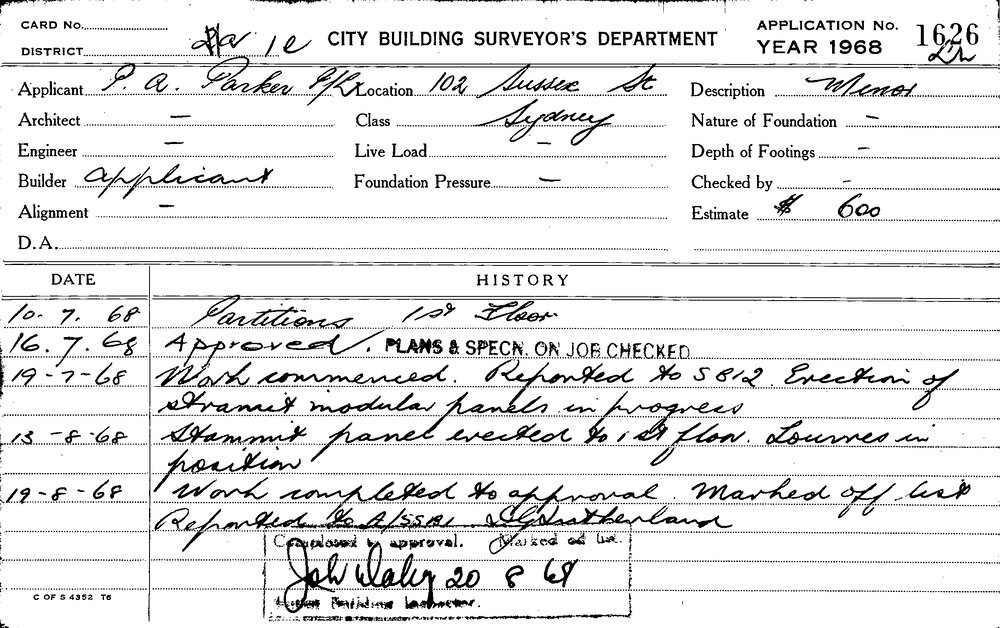 CARD No.
DISTRICT
CITY BUILDING SURVEYOR'S DEPARTMENT
APPLICATION No. 1626
YEAR 1968
Applicant P. A. Parker P/L Location 102 Sussex St Description Minor
Architect — Class Sydney Nature of Foundation —
Engineer — Live Load — Depth of Footings —
Builder applicant Foundation Pressure — Checked by -
Alignment — Estimate $ 600
D.A.
DATE HISTORY
10. 7. 68 Partitions 1st Floor
16. 7. 68 Approved. PLANS & SPECN. ON JOB CHECKED
19-7-68 Work commenced. Reported to S812. Erection of
modular panels in progress
13-8-68 panel erected to 1st floor. Louvres in
position
19-8-68 Work completed to approval. Marked off list
Reported to Sutherland
Completed to approval. Marked off list.
John Daley 20 8 68
Building Inspector.
C OF S 4352 T6